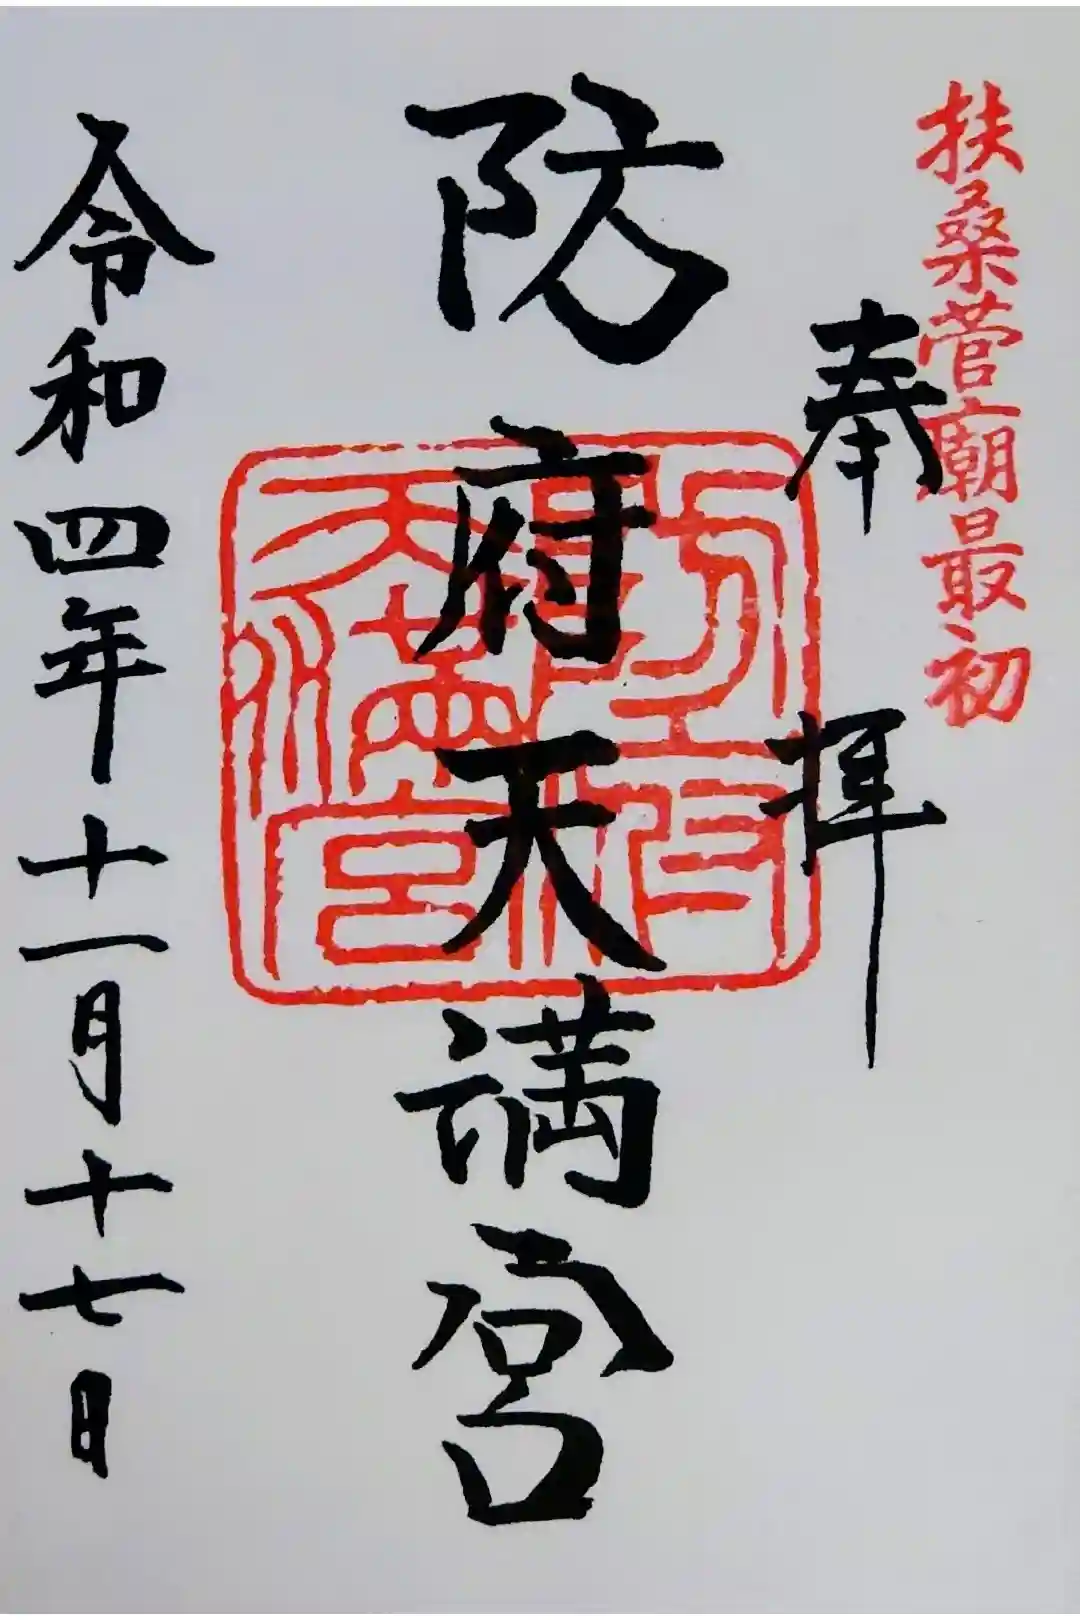 扶桑菅廟最初
奉拝
防府天満宮
防府
天満宮
令和四年十一月十七日